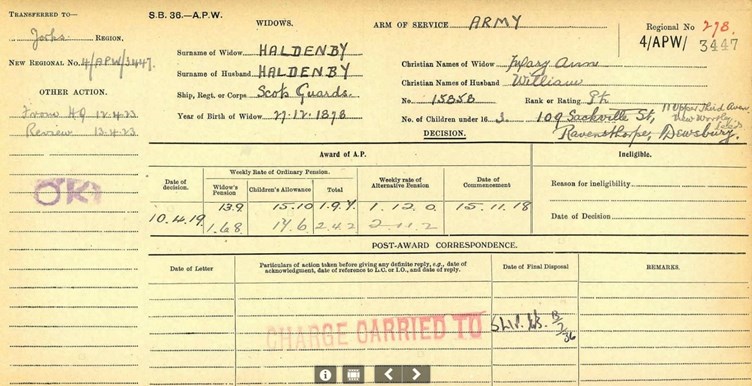 TRANSFERRED TO—
Yorks REGION,
NEW REGIONAL No. 4/APW/3447.
OTHER ACTION.
From HQ 12.4.23
Review 13.4.23
OK
S.B. 36.—A.P.W.
WIDOWS.
ARM OF SERVICE ARMY
Regional No 278
4/APW/ 3447
Surname of Widow HALDENBY
Christian Names of Widow Mary Ann
Surname of Husband HALDENBY
Christian Names of Husband William
Ship, Regt. or Corps Scots Guards.
No. 15858 Rank or Rating Pt.
Year of Birth of Widow 27.12.1878
No. of Children under 16 3. 109 Sackville St, Ravensthorpe, Dewsbury.
11 Upper Third Aven. New Wortley Leeds
DECISION.
Award of A.P.
Ineligible.
Date of decision.
Weekly Rate of Ordinary Pension.
Widow's Pension
Children's Allowance
Total
Weekly rate of Alternative Pension
Date of Commencement
Reason for ineligibility
10.4.19 13.9 15.10 1.9.7 1.12.0 15.11.18
1.6.8 17.6 2.4.2 2.11.2
Date of Decision
POST-AWARD CORRESPONDENCE.
Date of Letter
Particulars of action taken before giving any definite reply, e.g., date of acknowledgment, date of reference to L.C. or I.O., and date of reply.
Date of Final Disposal
REMARKS.
CHARGE CARRIED TO